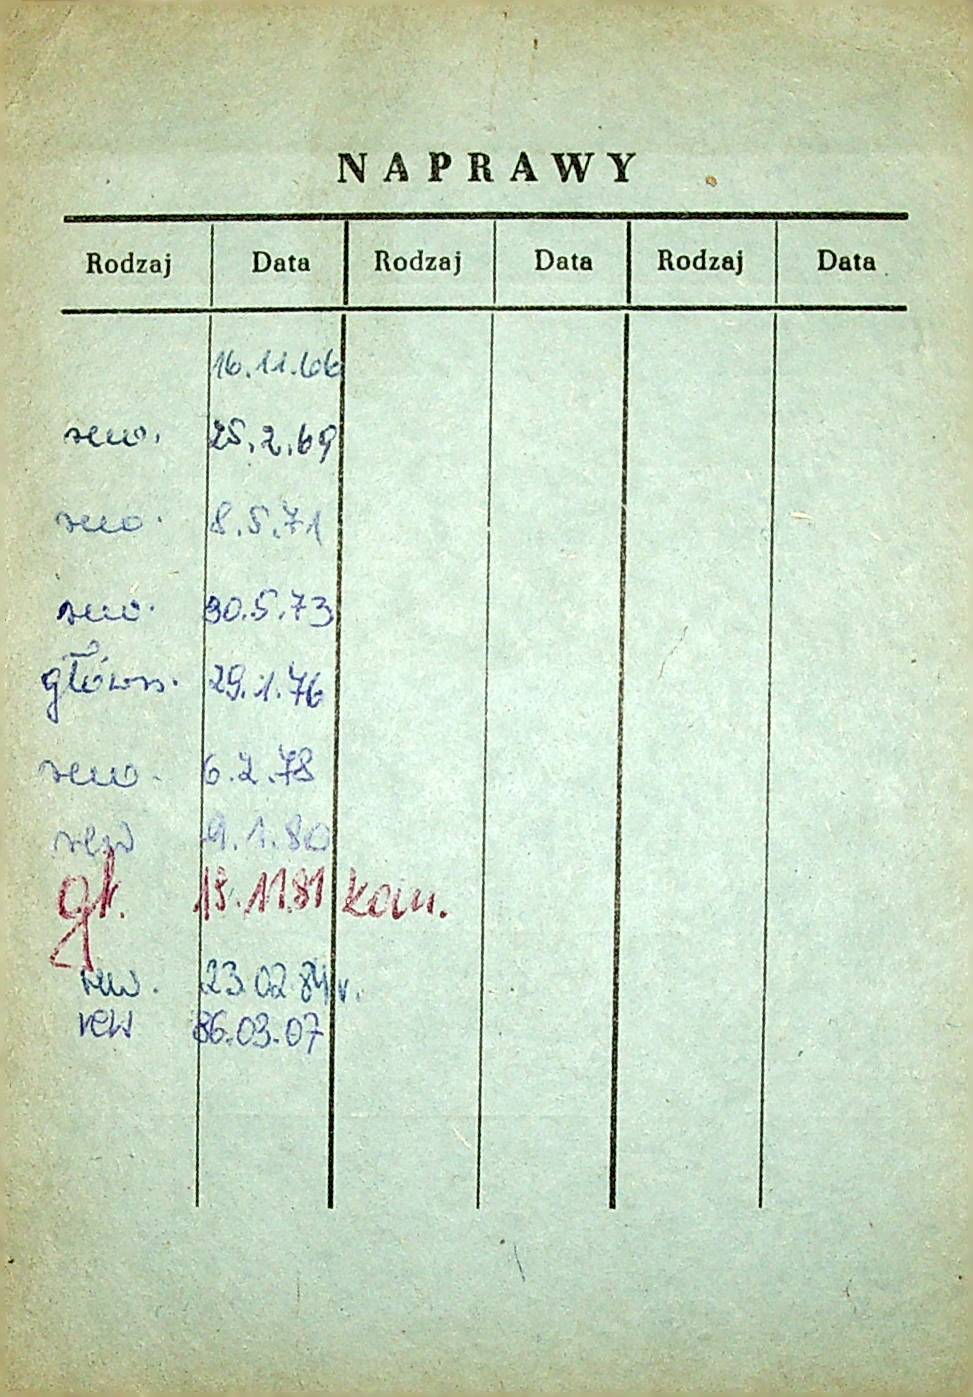 NAPRAWY
Rodzaj Data Rodzaj Data Rodzaj Data
16.11.66
rew. 25.2.69
rew. 8.5.71
rew. 30.5.73
główn. 29.1.76
rew. 6.2.78
rew 9.1.80
gł. 11.81 kom.
rew. 23.02.84 r.
rew 86.03.07